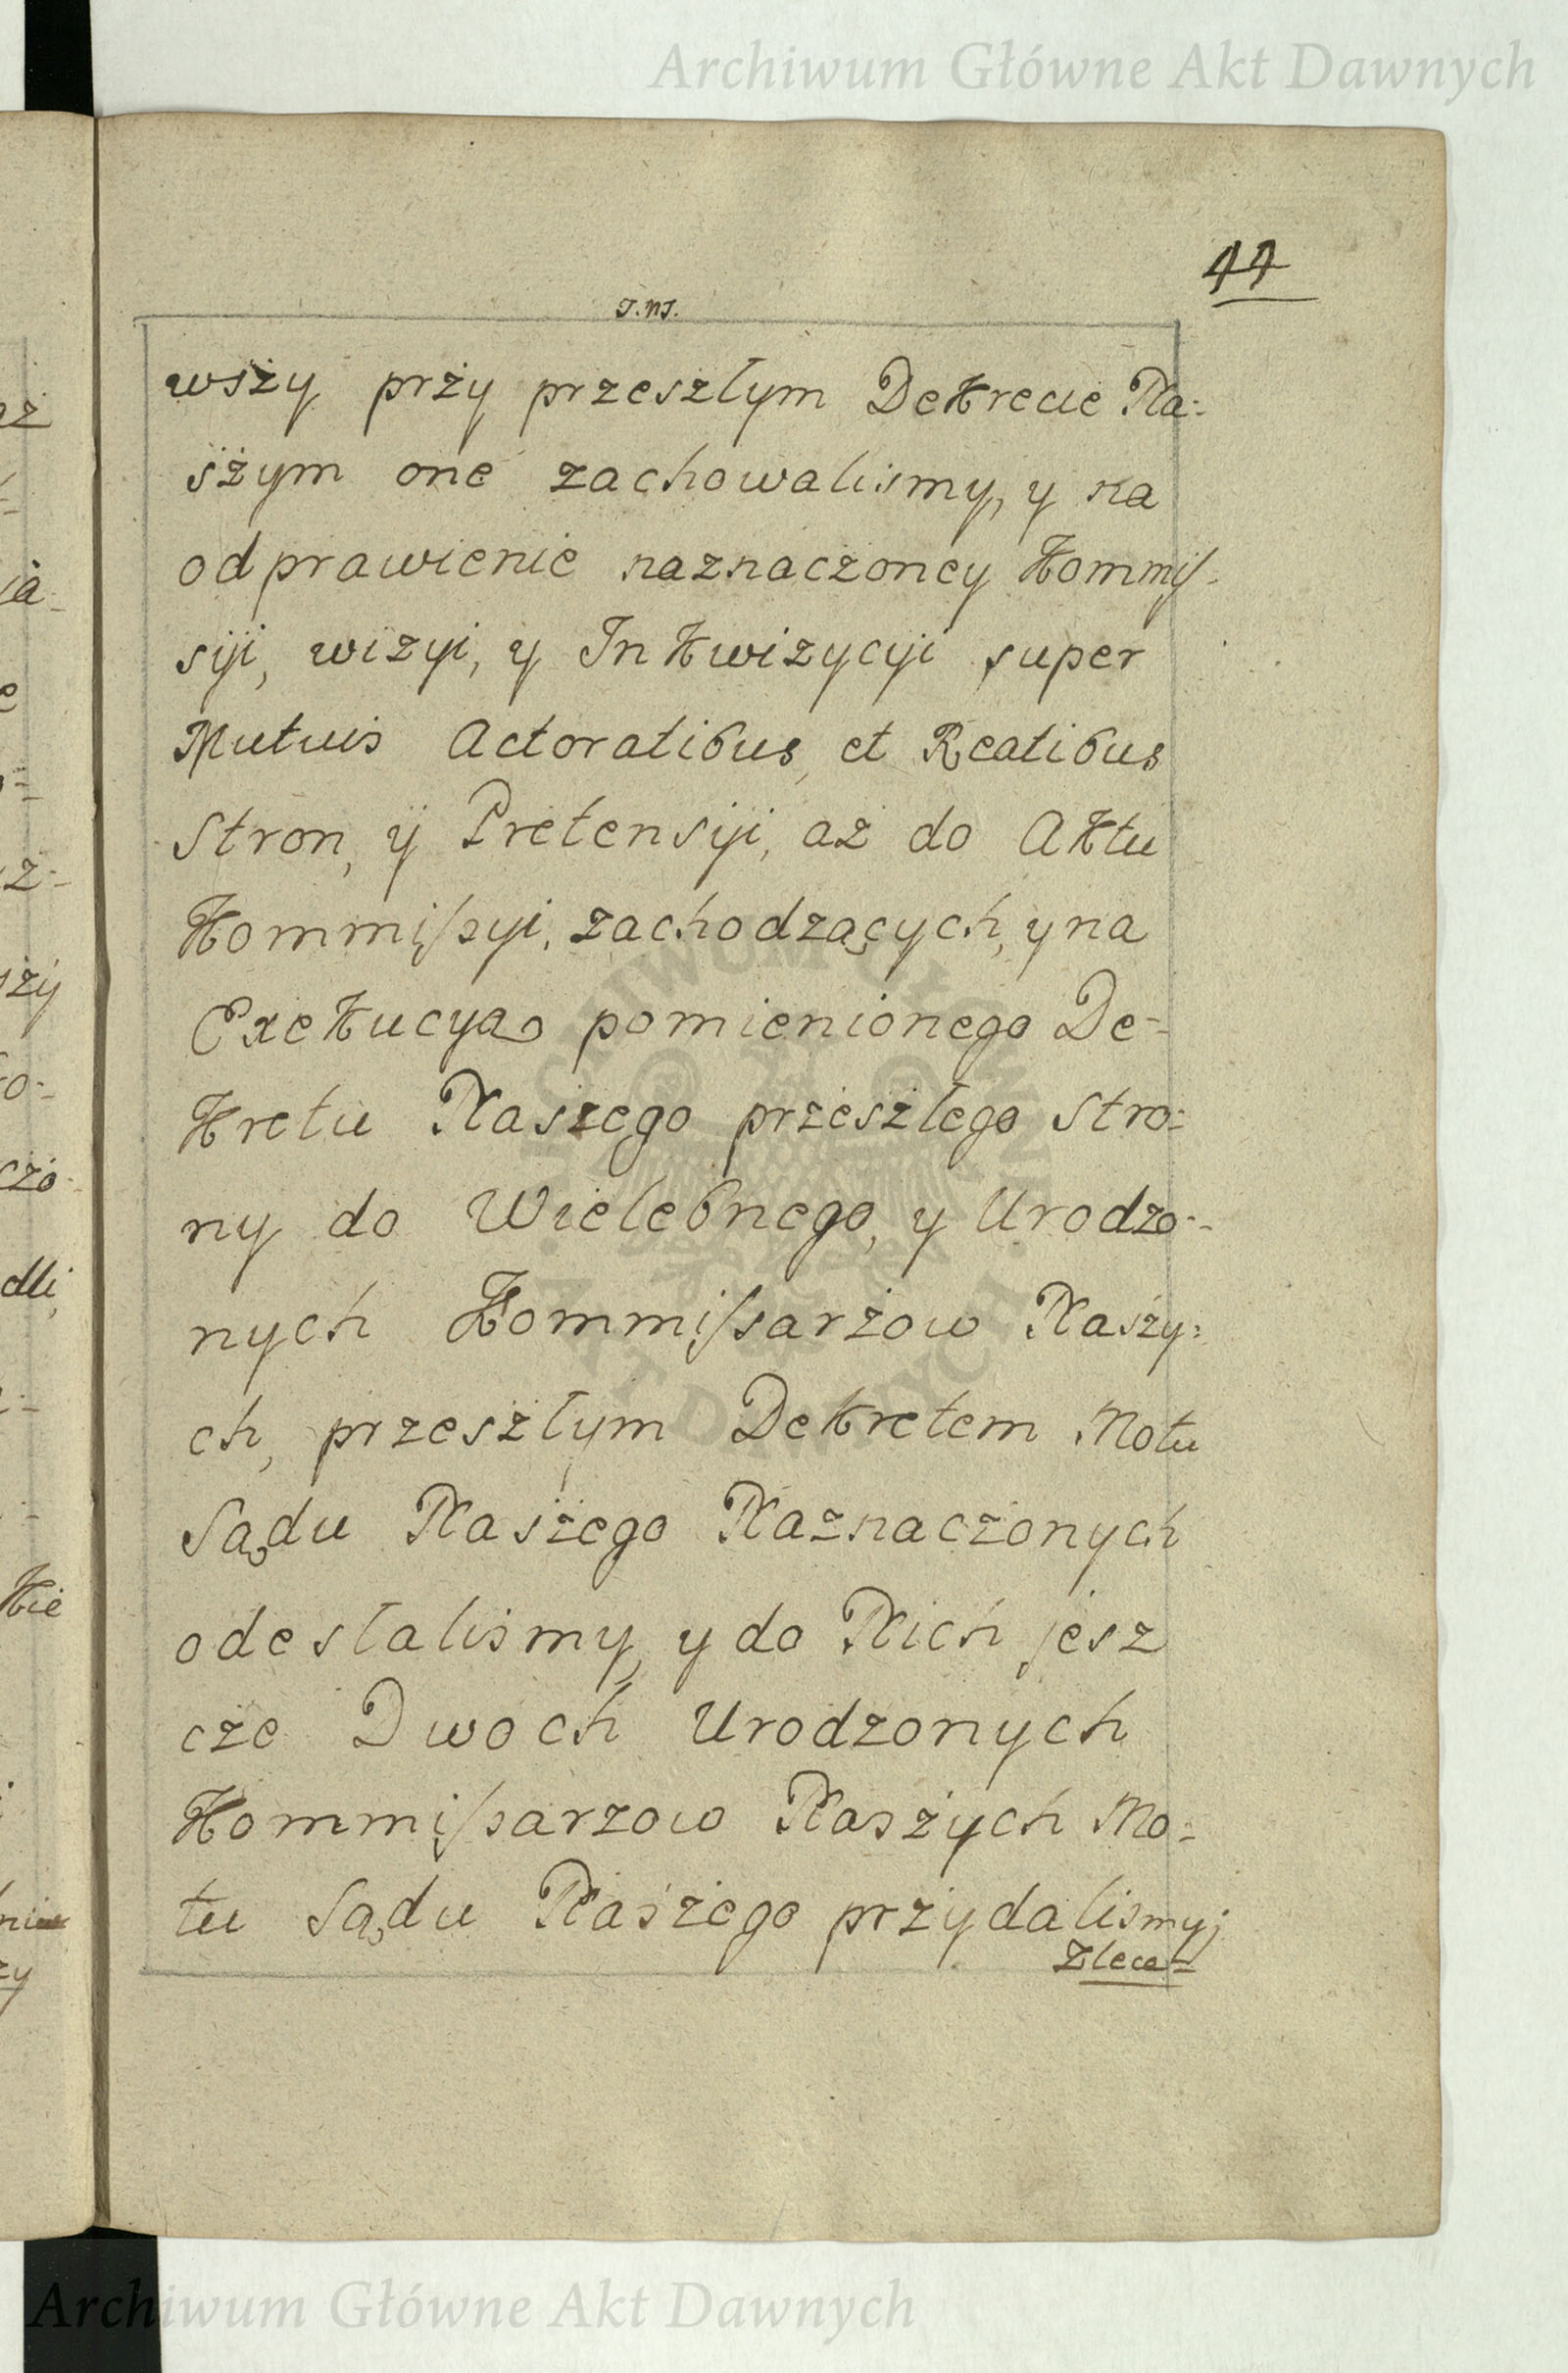 Archiwum Główne Akt Dawnych
44
J.M.J.
wszy przy przeszłym Dekrecie Na-
szym one zachowalismy, y na
odprawienie naznaczoney Kommis-
syji, wizyi, y Inkwizycyji super
Mutuis Actoratibus, et Reatibus
Stron, y Pretensyji, aż do Aktu
Kommissyi, zachodzących, y na
Exekucyą pomienionego De-
kretu Naszego przeszłego Stro-
ny do Wielebnego, y Urodzo-
nych Kommissarzow Naszy-
ch, przeszłym Dekretem Motu
Sądu Naszego Naznaczonych
odesłalismy, y do Nich jesz
cze Dwoch Urodzonych
Kommissarzow Naszych Mo-
tu Sądu Naszego przydalismy;
Zlece-
Archiwum Główne Akt Dawnych